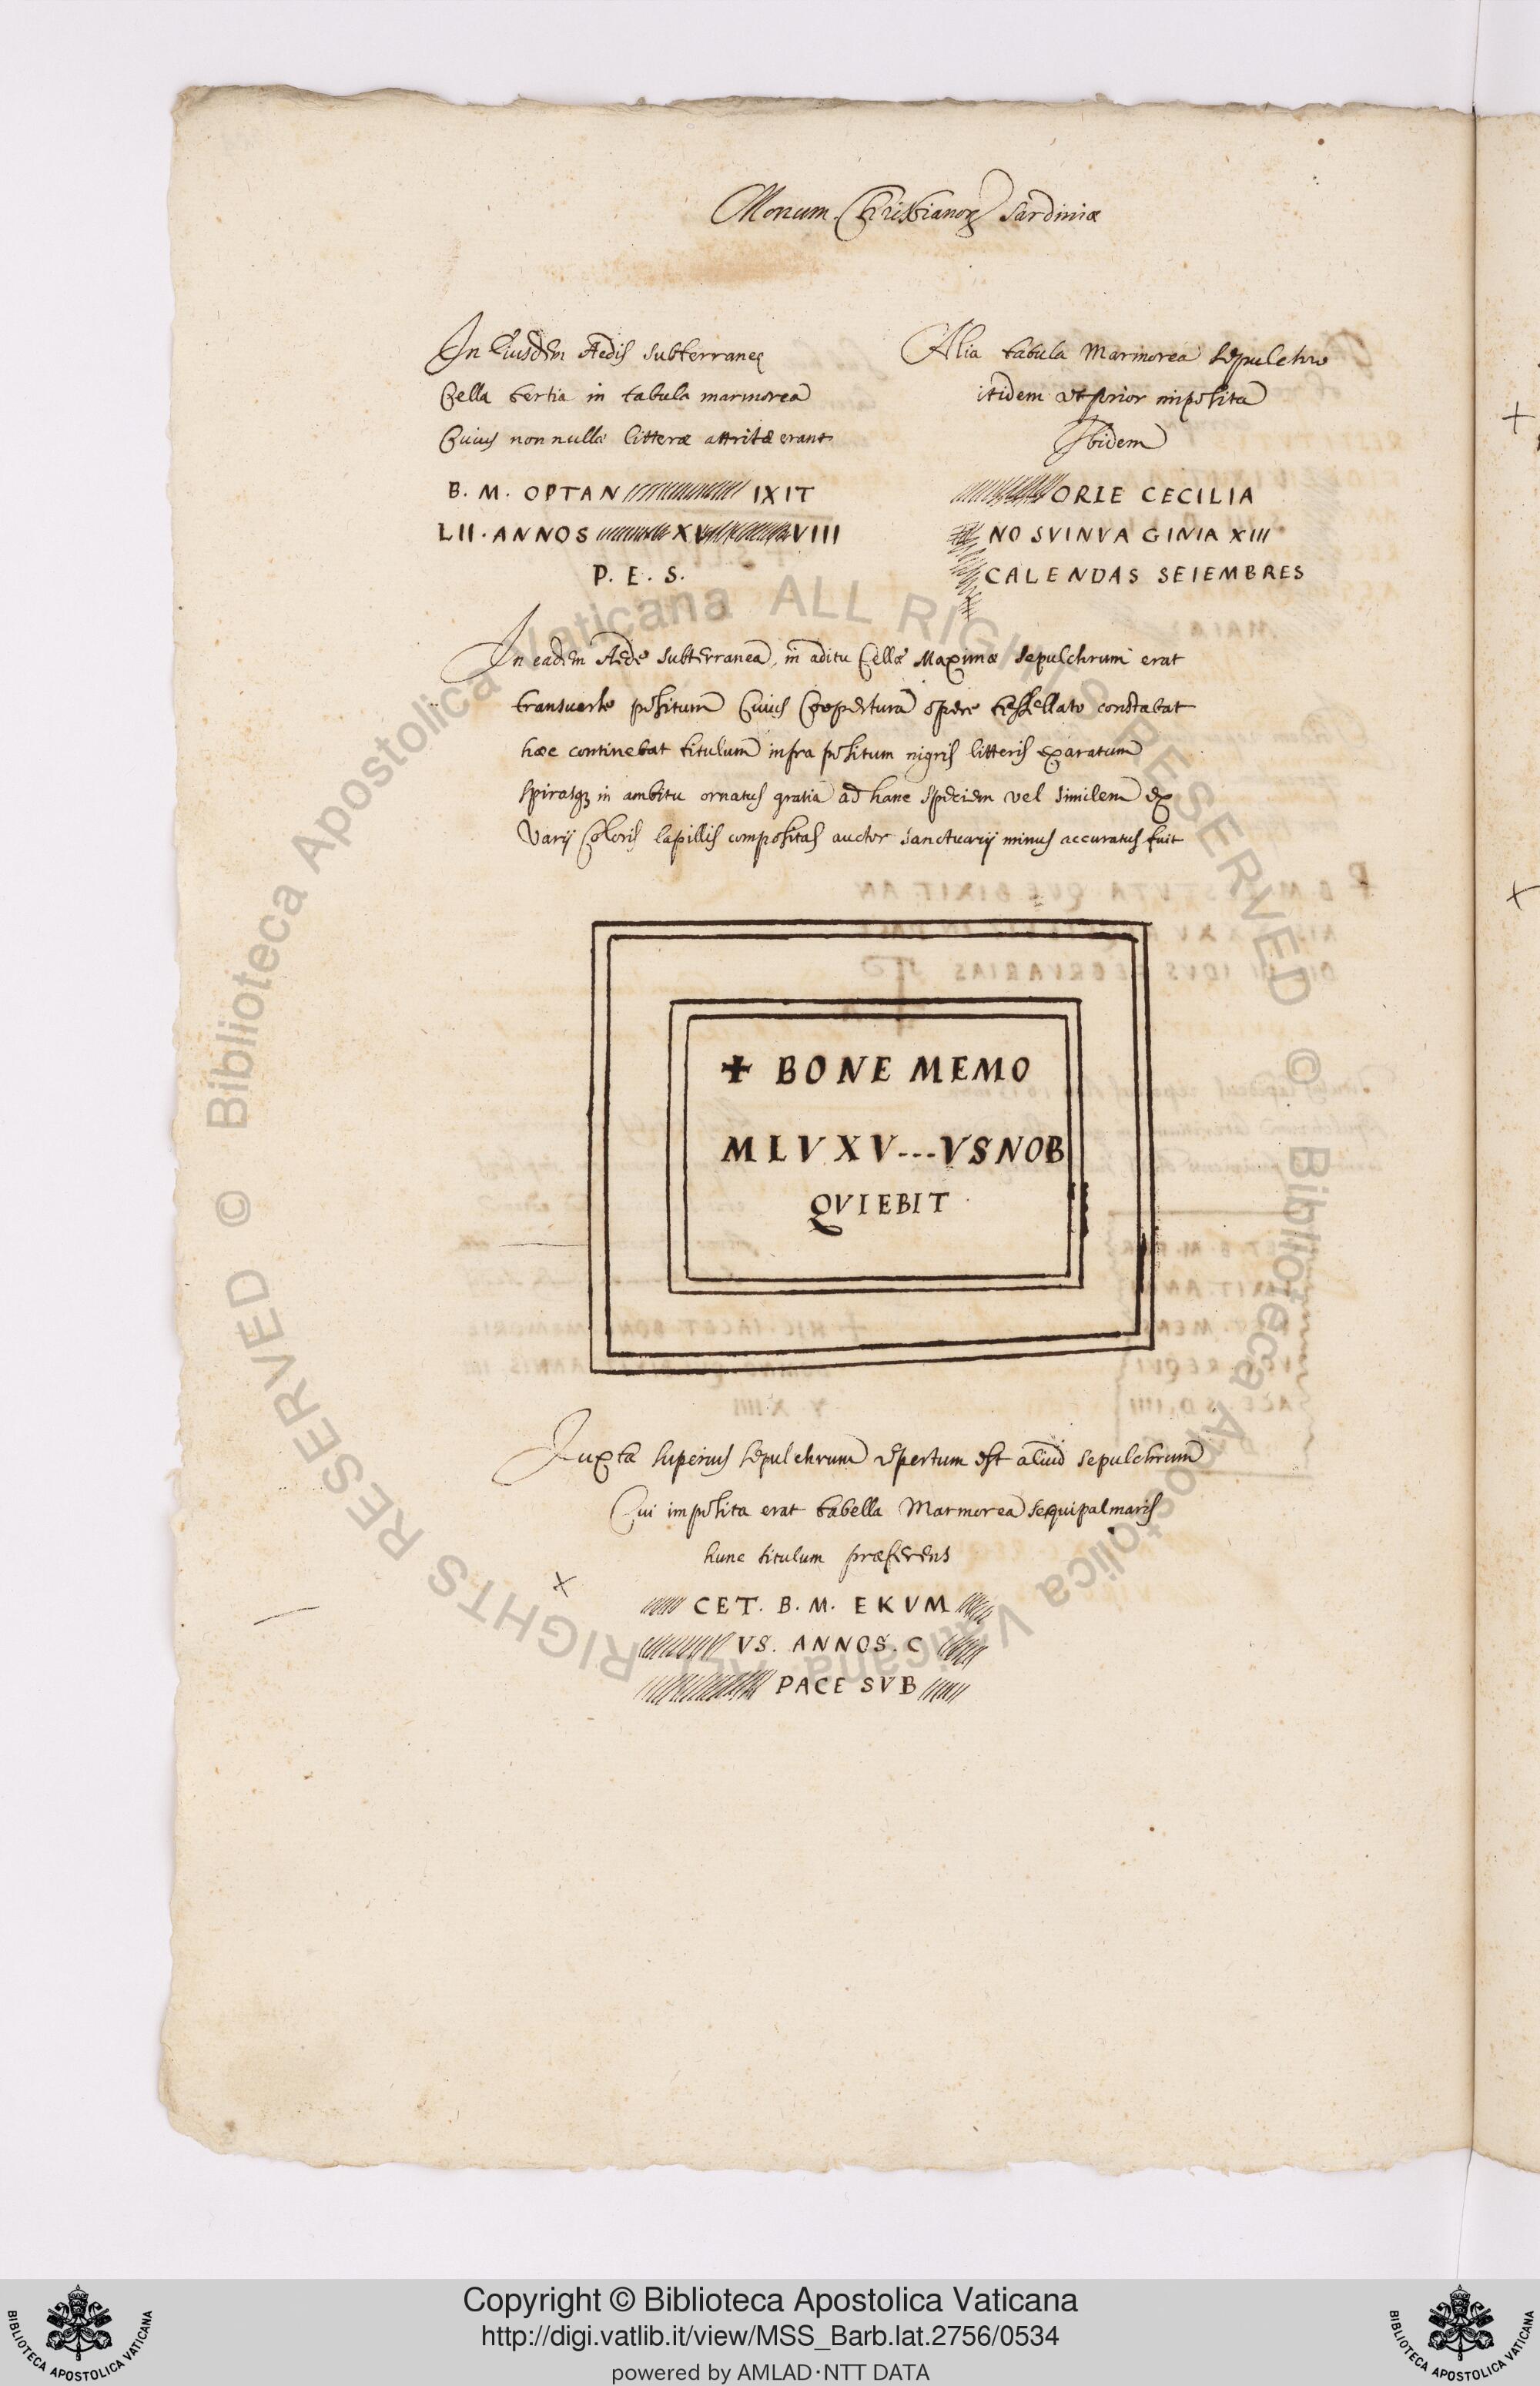 Monum. Christianoꝝ Sardiniæ
In Eiusdem Aedis subterraneę
Cella tertia in tabula marmorea
Cuius nonnullæ litteræ attritæ erant
B. M. OPTAN IXIT
LII. ANNOS XV VIII
P. E. S.
Alia tabula Marmorea sepulchro
itidem ut prior imposita
Ibidem
ORIE CECILIA
NO SVINVA GINIA XIII
CALENDAS SEIEMBRES
In eadem Aede subterranea, in aditu Cellæ Maximæ sepulchrum erat
transuerse positum Cuius Coopertura opere tessellato constabat
hæc continebat titulum infra positum nigris litteris exaratum
spirasq; in ambitu ornatus gratia ad hanc speciem vel similem ex
Varij Coloris lapillis compositas auctor sanctuarij minus accuratus fuit
✚ BONE MEMO
MLVXV---VSNOB
QVIEBIT
Iuxta superius sepulchrum repertum est aliud sepulchrum
Cui imposita erat tabella Marmorea sequipalmaris
hunc titulum præferens
x
CET. B. M. EKVM
VS. ANNOS. C
PACE SVB
© Biblioteca Apostolica Vaticana ALL RIGHTS RESERVED © Biblioteca Apostolica Vaticana ALL RIGHTS RESERVED
Copyright © Biblioteca Apostolica Vaticana
http://digi.vatlib.it/view/MSS_Barb.lat.2756/0534
powered by AMLAD·NTT DATA
BIBLIOTECA APOSTOLICA VATICANA
BIBLIOTECA APOSTOLICA VATICANA